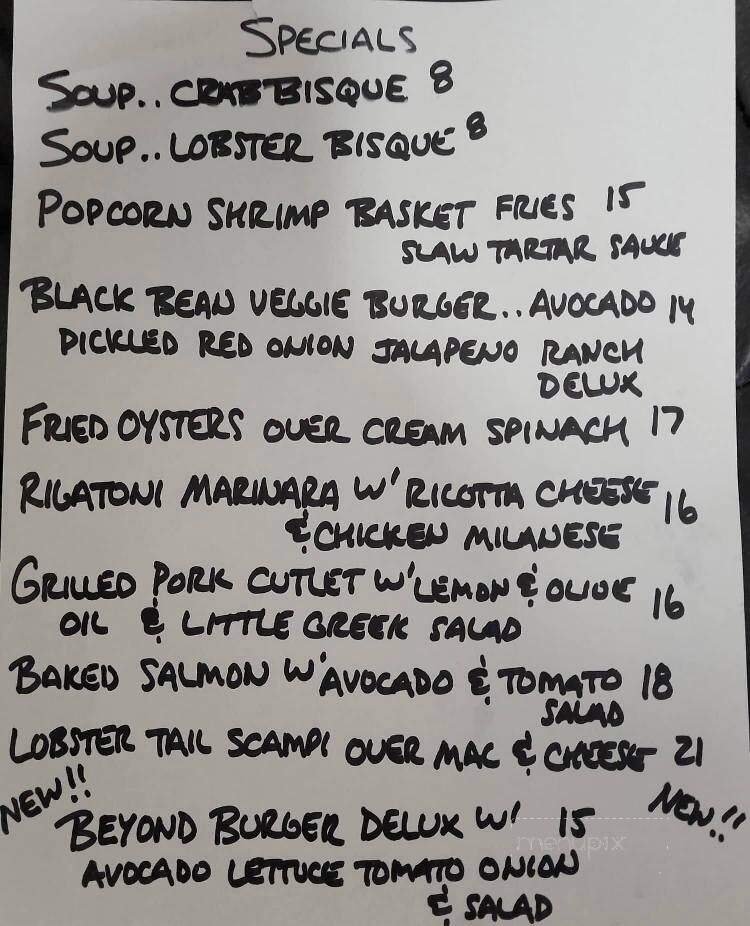 SPECIALS
SOUP.. CRAB BISQUE 8
SOUP.. LOBSTER BISQUE 8
POPCORN SHRIMP BASKET FRIES 15
SLAW TARTAR SAUCE
BLACK BEAN VEGGIE BURGER.. AVOCADO 14
PICKLED RED ONION JALAPENO RANCH
DELUX
FRIED OYSTERS OVER CREAM SPINACH 17
RIGATONI MARINARA W' RICOTTA CHEESE 16
& CHICKEN MILANESE
GRILLED PORK CUTLET W' LEMON & OLIVE 16
OIL & LITTLE GREEK SALAD
BAKED SALMON W' AVOCADO & TOMATO 18
SALAD
LOBSTER TAIL SCAMPI OVER MAC & CHEESE 21
NEW!! NEW!!
BEYOND BURGER DELUX W' 15
menupix
AVOCADO LETTUCE TOMATO ONION
& SALAD